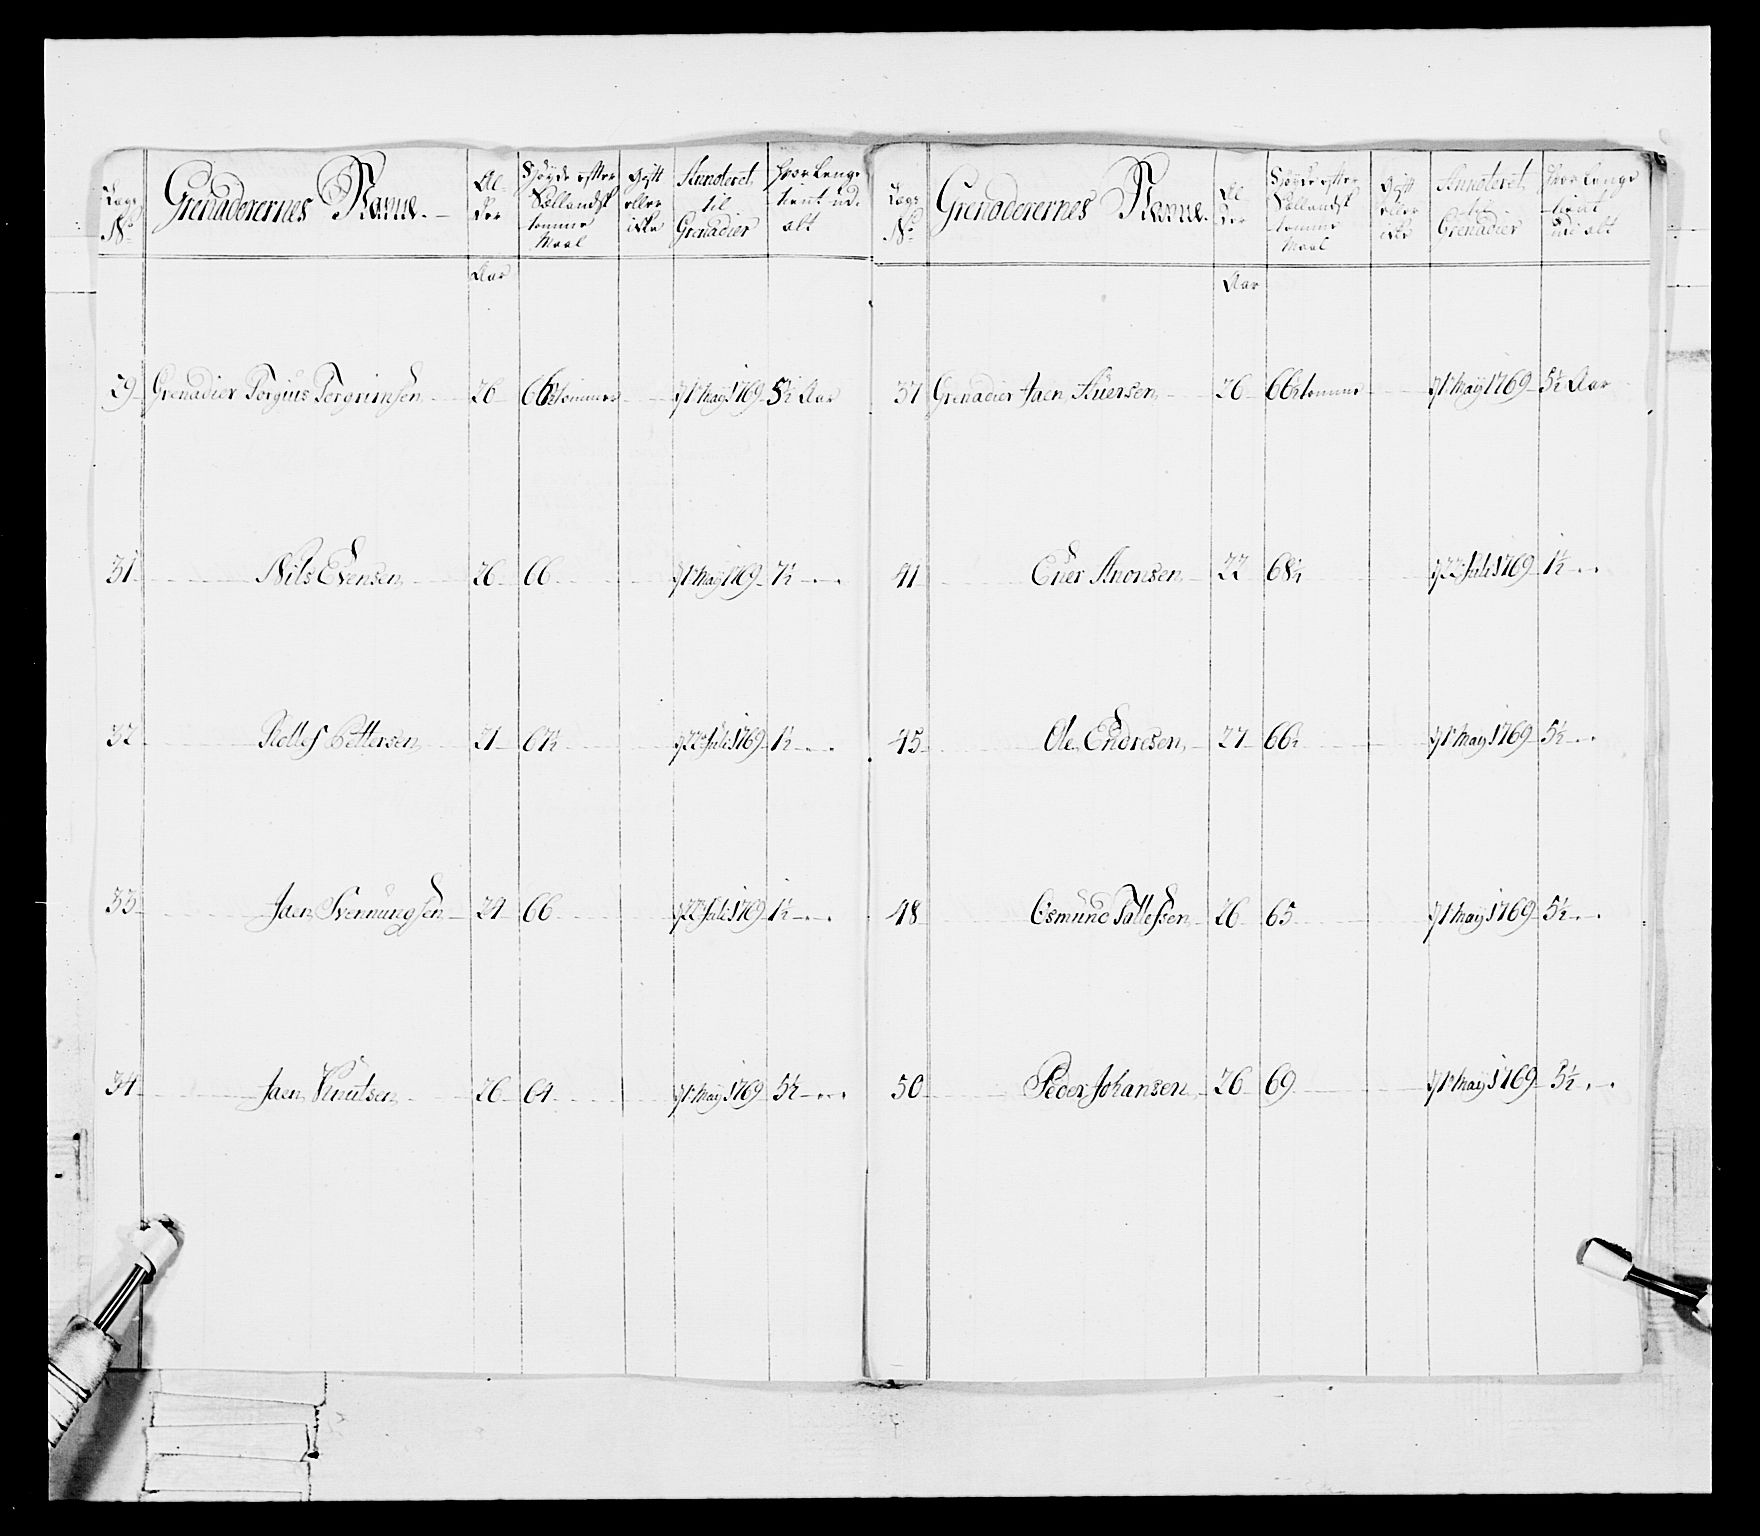 Lægs No
Grenaderernes Nanne.
Al-
der
Høyde efter
Sællandsk
tomme
Maal
Gift
eller
ikke
Annoteret
til
Grenadier
Hvor Lenge
tient ud-
alt
Aar
29 Grenadier Torgius Torgrimsen 26 66½ tommer d 1te May 1769 5½ Aar
31 Nils Evensen 26 66 d 1te May 1769 7½
32 Petter­sen 21 67½ d 22de Juli 1769 1½
33 Jaen Svennungsen 24 66 d 22de Juli 1769 1½
34 Jaen Knutsen 26 64 d 1te May 1769 5½
Lægs No
Grenaderernes Nanne.
Al-
der
Høyde efter
Sællandsk
tomme
Maal
Gift
eller
ikke
Annoteret
til
Grenadier
Hvor Lenge
tient
udi alt
Aar
37 Grenadier Jaen Siversen 26 66½ tomme d 1te May 1769 5½ Aar
41 Ener Anonsen 22 68½ d 22de Juli 1769 1½
45 Ole Endresen 27 66½ d 1te May 1769 5½
48 Osmund Tallefsen 26 65 d 1te May 1769 5½
50 Peder Johansen 26 69 d 1te May 1769 5½